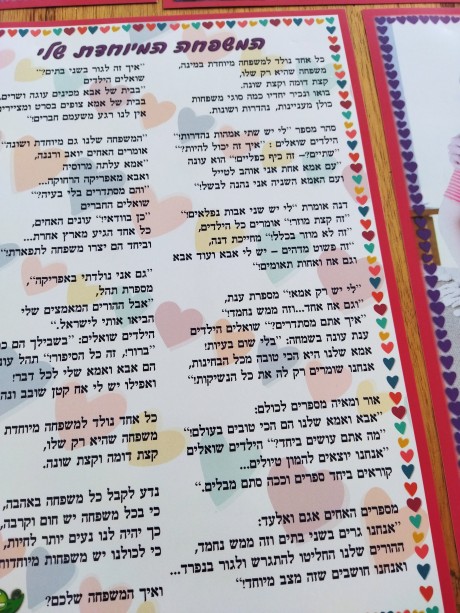 המשפחה המיוחדת שלי
כל אחד נולד למשפחה מיוחדת במינה,
משפחה שהיא רק שלו,
קצת דומה וקצת שונה.
בואו ונכיר יחדיו כמה סוגי משפחות
כולן מעניינות, נהדרות ושונות.
סהר מספר "לי יש שתי אמהות נהדרות!"
הילדים שואלים: "איך זה יכול להיות?"
"שתיים?– זה כיף כפליים!" הוא עונה
"עם אמא אחת אני אוהב לטייל
ועם האמא השניה אני נהנה לבשל!"
דנה אומרת "לי יש שני אבות נפלאים!"
"זה קצת מוזר!" אומרים כל הילדים,
"זה לא מוזר בכלל!" מחייכת דנה,
"זה פשוט מדהים – יש לי אבא ועוד אבא
וגם אח ואחות תאומים!"
"לי יש רק אמא!" מספרת ענת,
"וגם אח אחד...וזה ממש נחמד!"
"איך אתם מסתדרים?" שואלים הילדים
ענת עונה בשמחה: "בלי שום בעיות!
אמא שלנו היא הכי טובה מכל הבחינות,
אנחנו שומרים רק לה את כל הנשיקות!"
אור ומאיה מספרים לכולם:
"אבא ואמא שלנו הם הכי טובים בעולם!"
"מה אתם עושים ביחד?" הילדים שואלים
"אנחנו יוצאים להמון טיולים...
קוראים ביחד ספרים וככה סתם מבלים."
מספרים האחים אגם ואלעד:
"אנחנו גרים בשני בתים וזה ממש נחמד,
ההורים שלנו החליטו להתגרש ולגור בנפרד...
ואנחנו חושבים שזה מצב מיוחד!"
"איך זה לגור בשני בתים?"
שואלים הילדים
"בבית של אבא מכינים עוגה ושרים,
בבית של אמא צופים בסרט ומציירים
אין לנו רגע משעמם חברים!"
"המשפחה שלנו גם מיוחדת ושונה"
אומרים האחים יואב ורננה,
"אמא עלתה מרוסיה
ואבא מאפריקה הרחוקה...
"והם מסתדרים בלי בעיה?"
שואלים החברים
"כן בוודאי!" עונים האחים,
כל אחד הגיע מארץ אחרת...
וביחד הם יצרו משפחה לתפארת!"
"גם אני נולדתי באפריקה",
מספרת תהל,
"אבל ההורים המאמצים שלי
הביאו אותי לישראל."
הילדים שואלים: "בשבילך הם
"ברור!, זה כל הסיפור!" תהל
הם אבא ואמא שלי לכל דבר!
ואפילו יש לי אח קטן שובב
כל אחד נולד למשפחה מיוחדת
משפחה שהיא רק שלו,
קצת דומה וקצת שונה.
נדע לקבל כל משפחה באהבה,
כי בכל משפחה יש חום וקרבה,
כך יהיה לנו נעים יותר לחיות,
כי לכולנו יש משפחות מיוחדות
ואיך המשפחה שלכם?